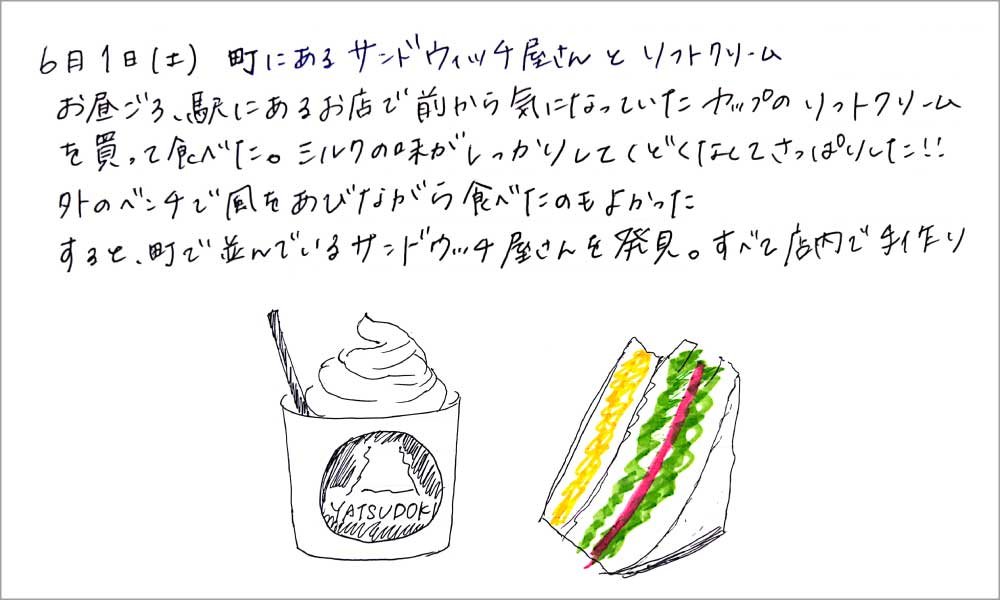 6月1日(土) 町にあるサンドウィッチ屋さんと ソフトクリーム
お昼ごろ、駅にあるお店で前から気になっていたカップのソフトクリーム
を買って食べた。ミルクの味がしっかりしてくどくなくてさっぱりした!!
外のベンチで風をあびながら食べたのもよかった
すると、町で並んでいるサンドウッチ屋さんを発見。すべて店内で手作り
YATSUDOKI